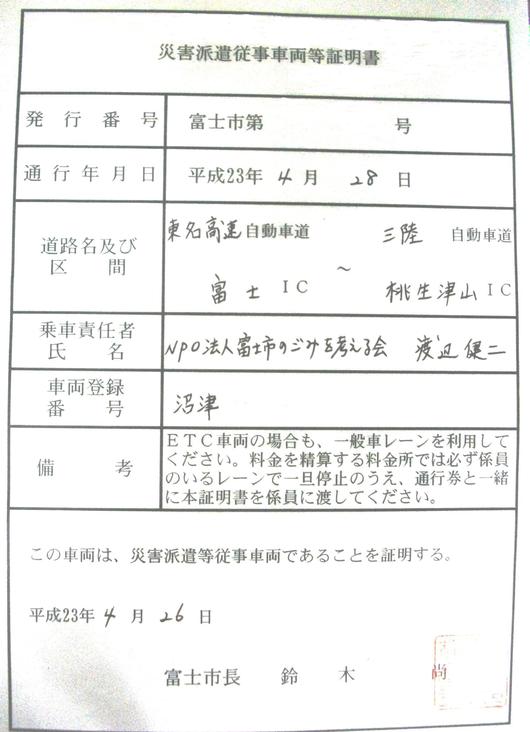 災害派遣従事車両等証明書
発行番号 富士市第 号
通行年月日 平成23年 4月 28日
道路名及び区間 東名高速自動車道 三陸 自動車道
富士IC ～ 桃生津山IC
乗車責任者氏名 NPO法人富士市のごみを考える会 渡辺健二
車両登録番号 沼津
備考 ETC車両の場合も、一般車レーンを利用して
ください。料金を精算する料金所では必ず係員
のいるレーンで一旦停止のうえ、通行券と一緒
に本証明書を係員に渡してください。
この車両は、災害派遣等従事車両であることを証明する。
平成23年 4月 26日
富士市長 鈴木 尚